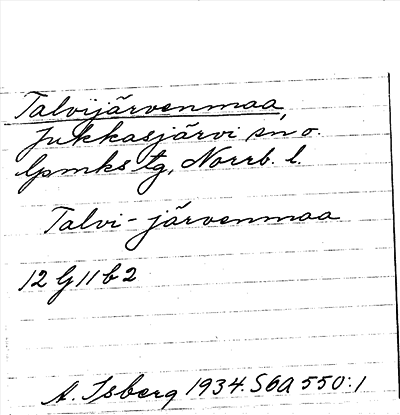 Talvijärvenmaa,
Jukkasjärvi sn o.
lpmks tg, Norrb. l.
Talvi-järvenmaa
12 G 11 b 2
A. Isberg 1934. S 6A 550:1